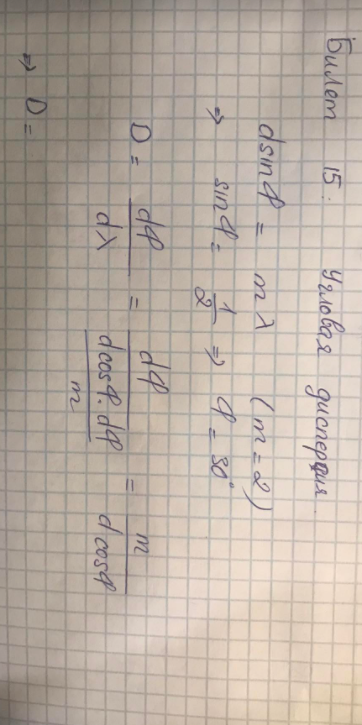 Билет 15: Угловая дисперсия.
dsinφ = mλ (m = 2)
⇒ sinφ = 1/2 ⇒ φ = 30°
D = dφ/dλ = dφ/(dcosφ·dφ/m) = m/dcosφ
⇒ D =